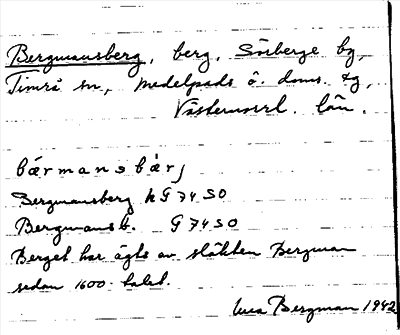 Bergmansberg, berg, Sörberge by,
Timrå sn, Medelpads ö. doms. tg,
Västernorrl. län.
bärmansbärj
Bergmansberg k G 74 SO
Bergmansb. G 74 SO
Berget har ägts av släkten Bergman
sedan 1600-talet.
Bergman 1942